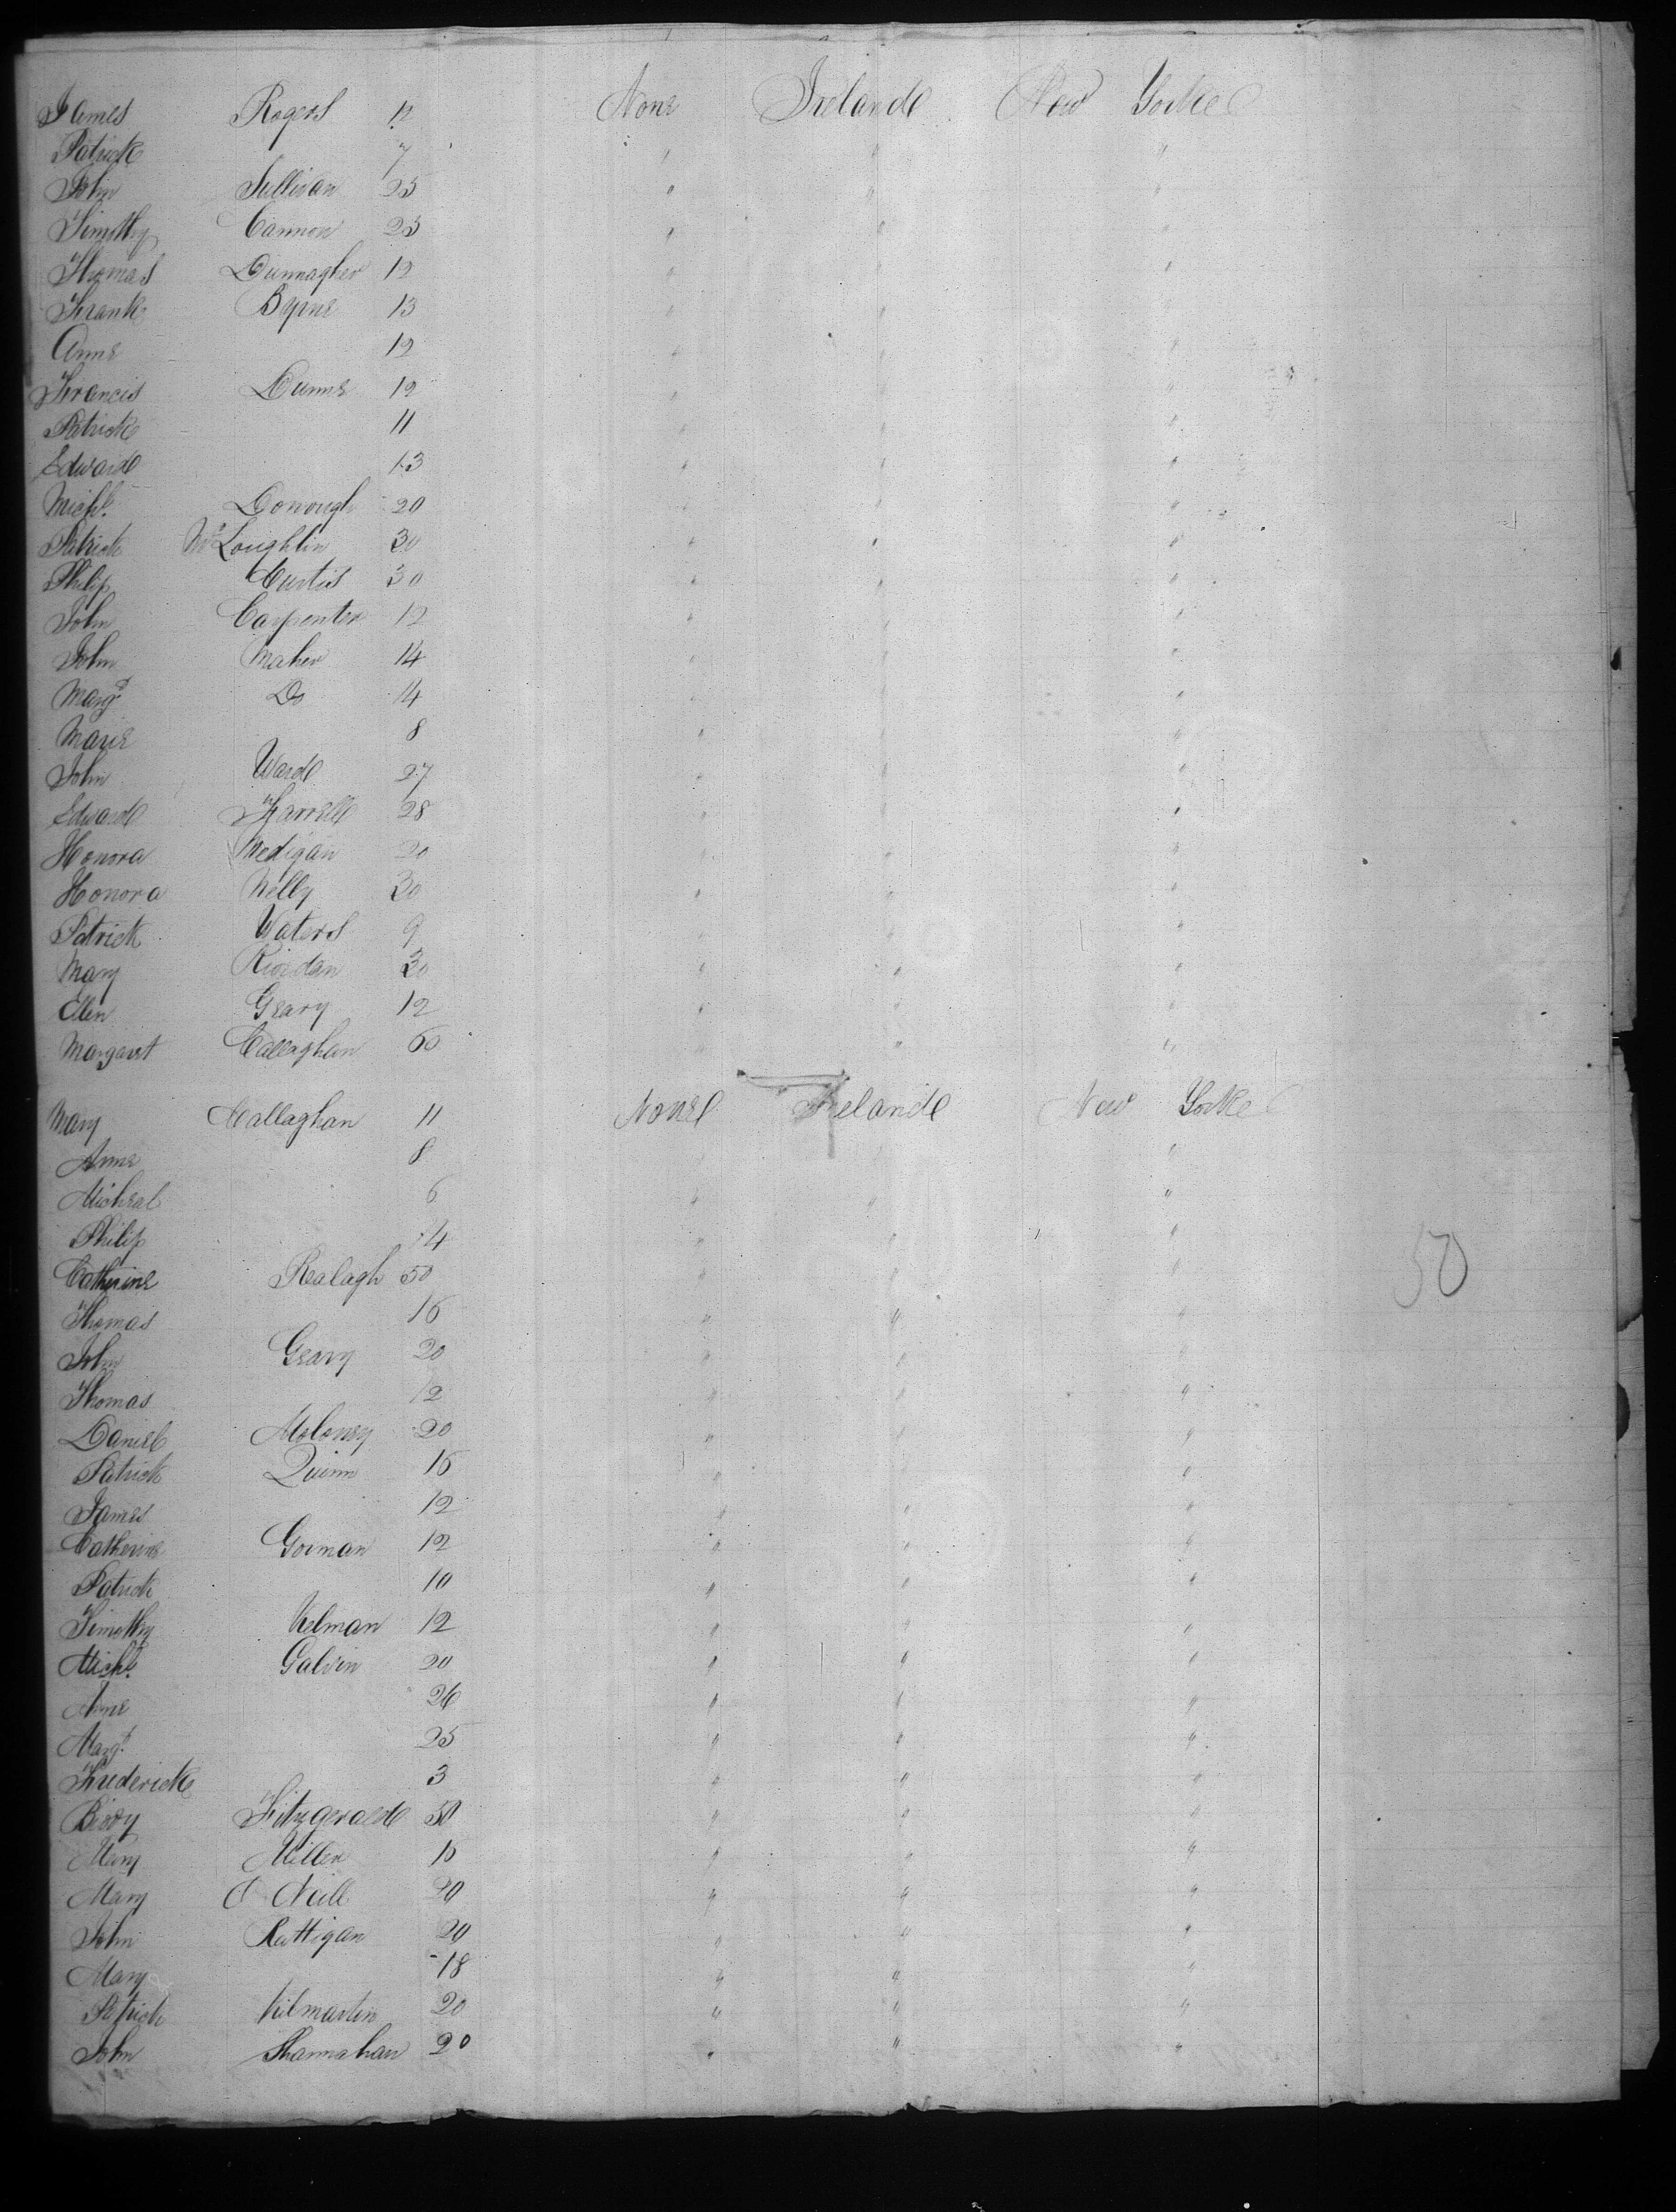 James Rogers 12 None Ireland New York
Patrick 7 " " "
John Sullivan 25 " " "
Timothy Cannon 25 " " "
Thomas Dunnagher 12 " " "
Frank Byrne 13 " " "
Anne 12 " " "
Francis Dunne 12 " " "
Patrick 11 " " "
Edward 13 " " "
Michl. Donough 20 " " "
Patrick McLoughlin 30 " " "
Philip Curtis 30 " " "
John Carpenter 12 " " "
John Maher 14 " " "
Margt Do 14 " " "
Marie 8 " " "
John Ward 27 " " "
Edward Farrell 28 " " "
Honora Medigan 20 " " "
Honora Nelly 30 " " "
Patrick Waters 9 " " "
Mary Riordan 30 " " "
Ellen Geary 12 " " "
Margaret Callaghan 60 " " "
Mary Callaghan 11 None Ireland New York
Anne 8 " " "
Micheal 6 " " "
Philip 4 " " "
Catherine Realagh 50 " " "
50
Thomas 16 " " "
John Geary 20 " " "
Thomas 12 " " "
Daniel Moloney 20 " " "
Patrick Quinn 16 " " "
James 12 " " "
Catherine Gorman 12 " " "
Patrick 10 " " "
Timothy Kelman 12 " " "
Michl. Galvin 20 " " "
Anne 26 " " "
Margt. 25 " " "
Frederick 3 " " "
Biddy Fitzgerald 50 " " "
Mary Miller " " "
Mary O Neill 20 " " "
John Rattigan 20 " " "
Mary 18 " " "
Patrick Kilmartin 20 " " "
John Shannahan 20 " " "